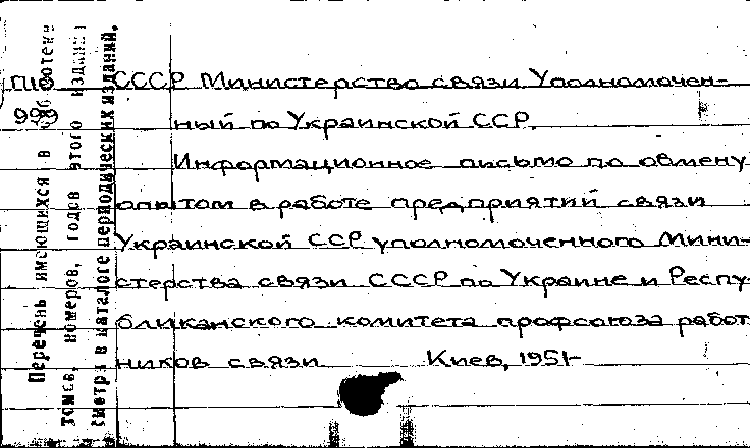 П10 СССР Министерство связи Уполномочен-
999 ный по Украинской ССР.
Информационное письмо по обмену
опытом в работе предприятий связи
Украинской ССР уполномоченного Мини-
стерства связи СССР по Украине и Респу-
бликанского комитета профсоюза работ
ников связи Киев, 1951-
Перечень имеющихся в библиотеке
томов, номеров, годов этого издания
смотри в каталоге периодических изданий.